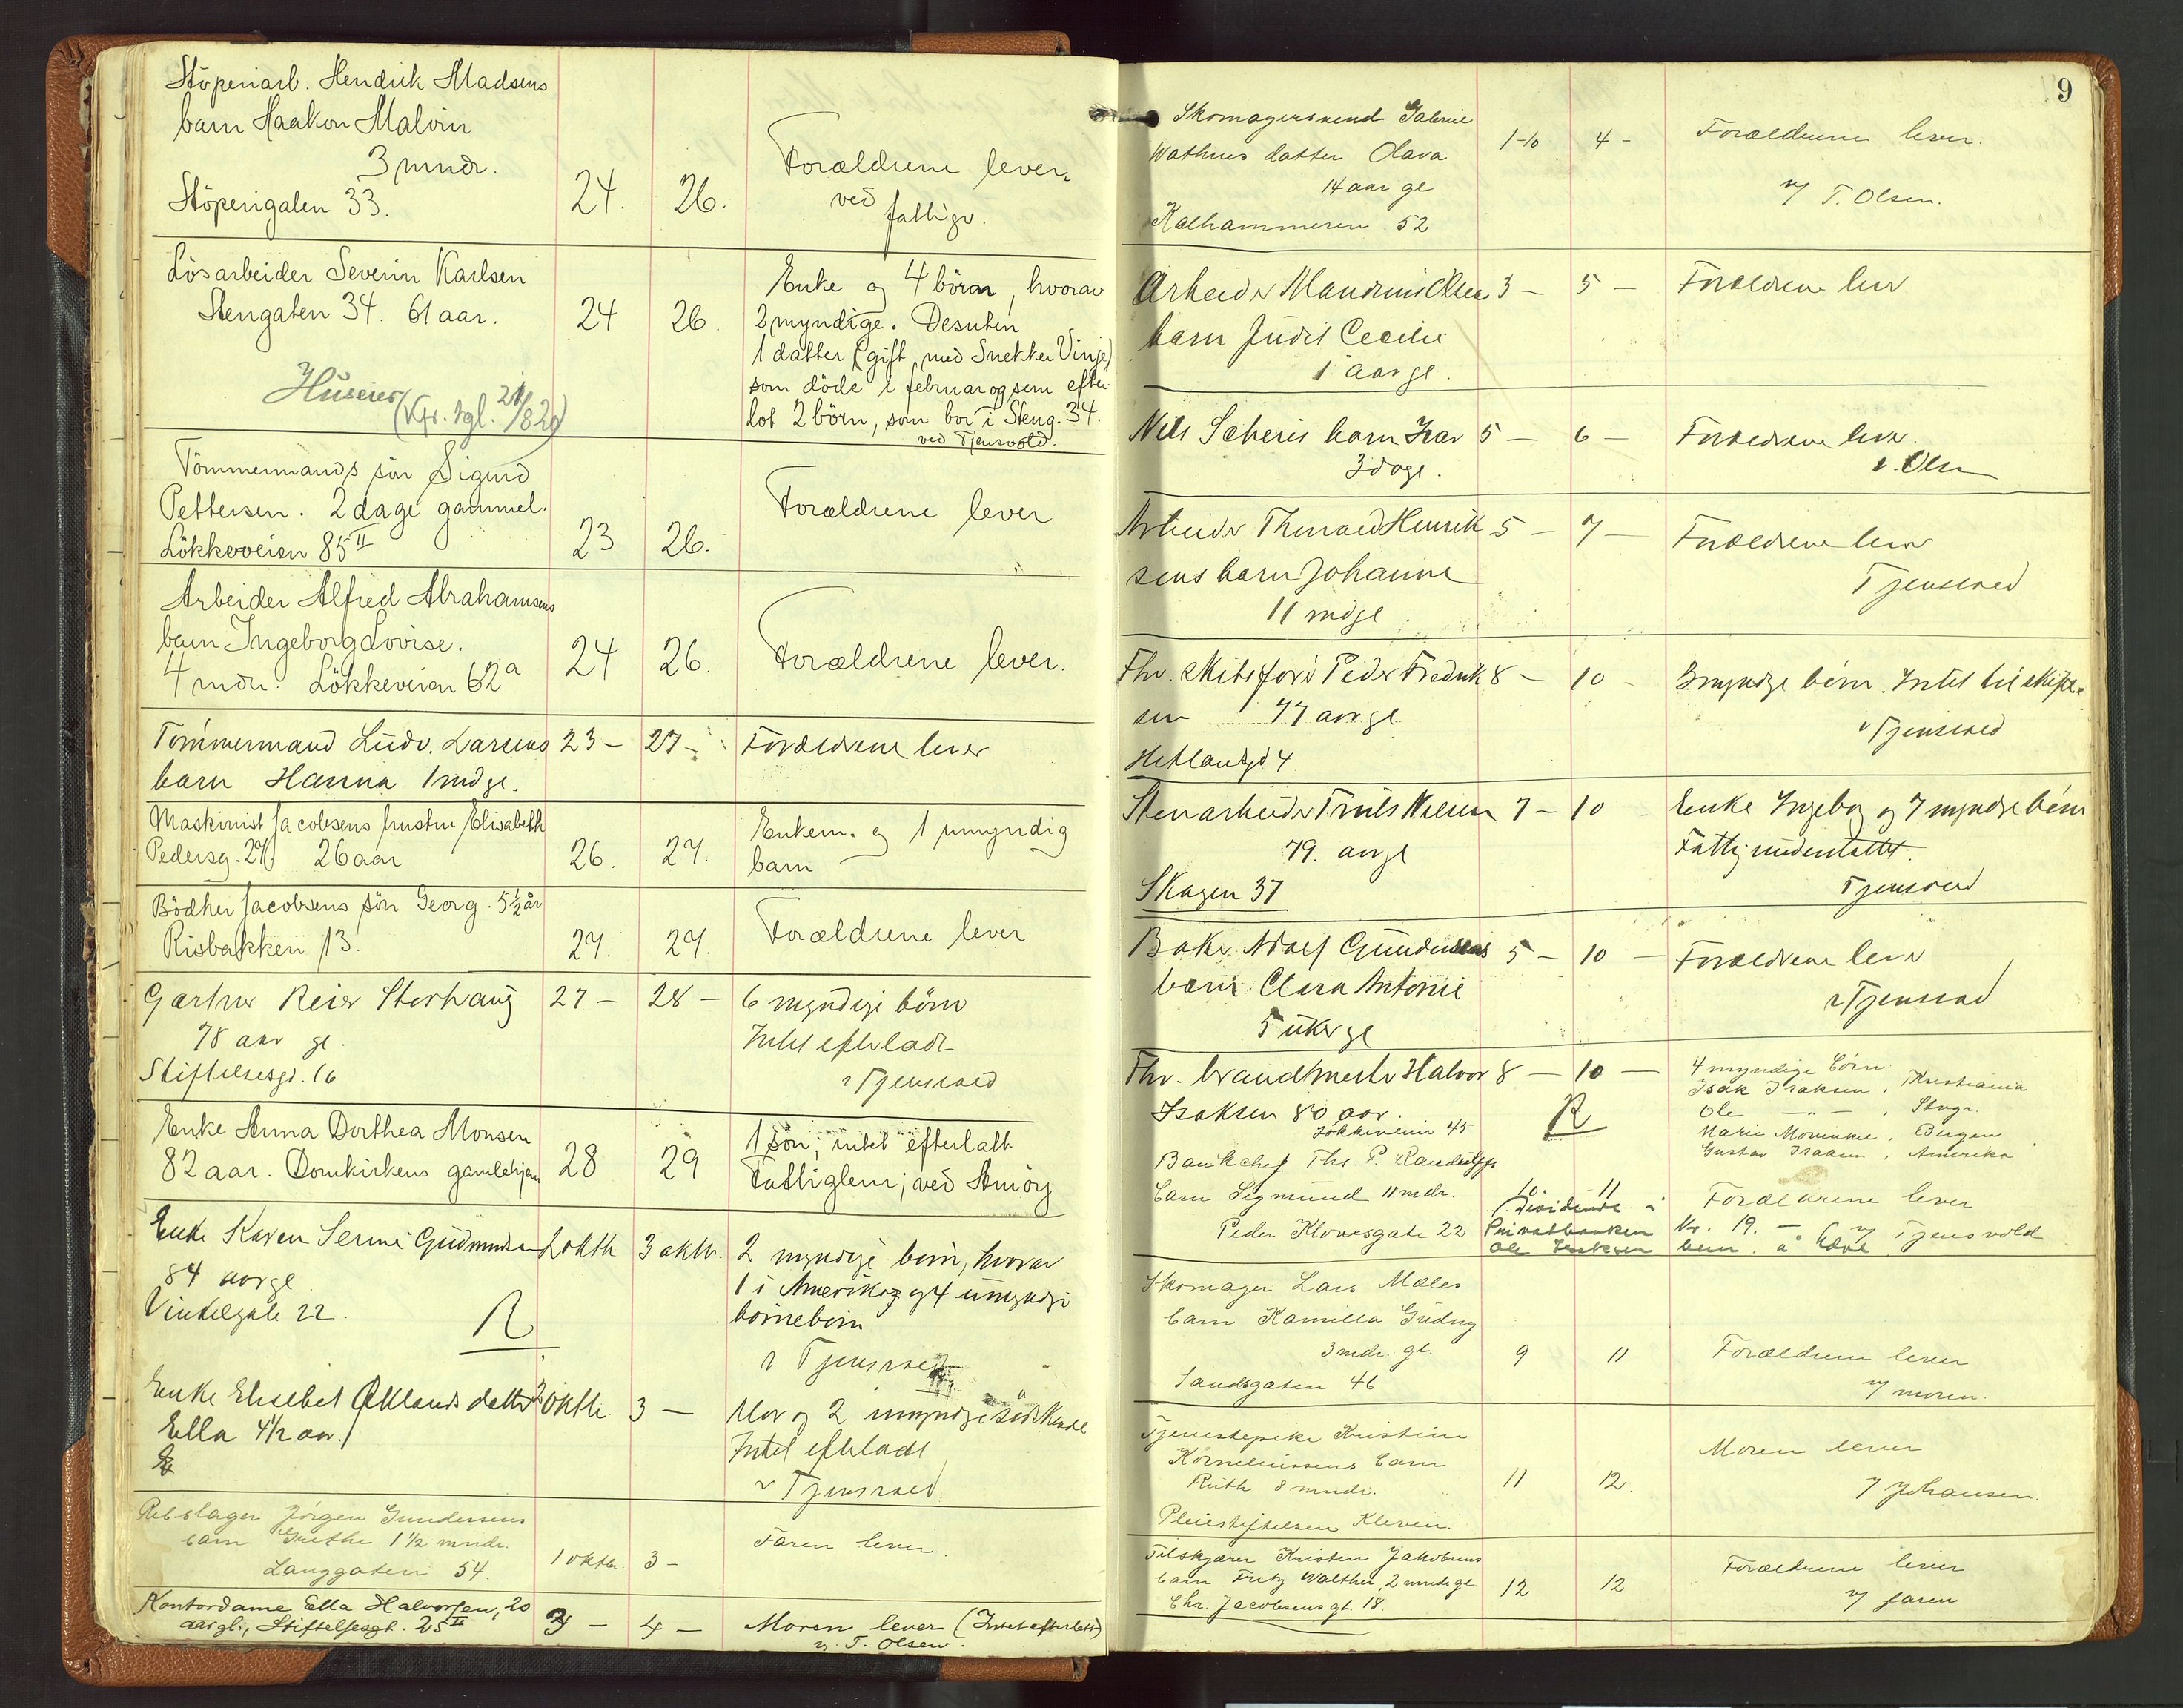 Støperiarb. Hendrik Madsens
barn Haakon Malvin
3 mndr.
Støperigaten 33.
24. 26.
Forældrene lever.
ved fattigv.
Løsarbeider Severin Karlsen
Stengaten 34. 61 aar.
24 26.
Huseier
(Kfr. tgl. 21/8 20)
Enke og 4 børn, hvorav
2 myndige. Desuten
1 datter (gift med Snekker Vinje)
som døde i februar og som efter-
lot 2 børn, som bor i Steng. 34.
ved Tjensvold.
Tømmermands søn Sigurd
Pettersen. 2 dage gammel.
Løkkeveien 85 II
23 26.
Forældrene lever
Arbeider Alfred Abrahamsens
barn Ingeborg Lovise.
4 mdr. Løkkeveien 62a
24 26.
Forældrene lever.
Tømmermand Ludv. Larsens 23 - 27 - Forældrene lever
barn Hanna 1 md gl.
Maskinist Jacobsens hustru Elisabeth
Pedersg. 27 26 aar
26. 27.
Enkem. og 1 umyndig
barn
Bødker Jacobsens søn Georg. 5 1/2 år
Risbakken 13.
27. 27.
Forældrene lever
Gartner Reier Storhaug 27 - 28 - 6 myndige børn
78 aar gl. Intet efterladt
Stiftelsesgt. 16 v Tjensvold
Enke Anna Dorthea Monsen
82 aar. Domkirkens gamlehjem
28 29
1 søn; intet efterlatt
Fattiglem; ved Amøy
Enke Karen Serine Gudmundsen 2 oktb 3 oktb. 2 myndige børn, hvorav
84 aar gl 1 i Amerika og 4 umyndige
Vinkelgate 22. børnebørn
R
v Tjensvold
Enke Elisebet Øklands datter 2 oktb. 3 - Mor og 2 umyndige södskende
Ella 4 1/2 aar. Intet efterladt
v Tjensvold
Rebslager Jørgen Gundersens
barn Grethe 1 1/2 mndr.
Langgaten 54.
1 oktbr. 3 -
Faren lever.
Kontordame Ella Halvorsen, 20
aar gl., Stiftelsesgt. 25 II
3 - 4 -
Moren lever (Intet efterlatt)
v. T. Olsen.
9
Skomagersvend Gabriel
Wathnes datter Olava
14 aar gl
Kalhammeren 52
1-10 4 -
Forældrene lever.
v/ T. Olsen.
Arbeider Mauritius Olsens 3 - 5 - Forældrene lever
barn Judit Cecilie
1 aar gl.
Nils Scheries barn Ivar 5 - 6 - Forældrene lever.
3 dage. v. Olsen
Arbeider Thorvald Henrik 5 - 7 - Forældrene lever
sens barn Johanne Tjensvold
11 md gl
Fhv. skibsfører Peder Fredrik 8 - 10 - 3 myndige børn. Intet til skifte.
sen 77 aar gl v Tjensvold
Hetlandsgt 4
Stenarbeider Truls Nilsen 7 - 10 Enke Ingeborg og 7 myndige børn
79. aar gl Fattigunderstøttet.
Skagen 37 Tjensvold
Baker Adolf Gundersens 5 - 10 - Forældrene lever
barn Clara Antonie v Tjensvold
5 uker gl
Fhv. brandmester Halvor 8 - 10 -
Isaksen 80 aar.
Løkkeveien 45
R
4 myndige børn:
Isak Isaksen, Kristiania
Ole -"- , Stvgr.
Marie Mommke, Bergen
Gustav Isaksen, Amerika
Bankchef Ths. P. Randulffs
barn Sigmund 11 mdr.
Peder Klowsgate 22
10. 11
Forældrene lever
v/ Tjensvold
(Dividende i
Privatbanken kr. 19. -
Ole Isaksen bem. å hæve
Skomager Lars Mæles
barn Kamilla Gudny
3 mdr. gl.
Sandsgaten 46
9 11
Forældrene lever
v/ moren.
Tjenestepike Kristine
Korneliussens barn
Ruth 8 mndr.
Pleiestiftelsen Kleven.
11 12.
Moren lever
v/ Johansen.
Tilskjærer Kristen Jakobsens
barn Fritz Walther, 2 mndr gl
Chr. Jacobsensgt. 18.
12 12
Forældrene lever
v/ faren